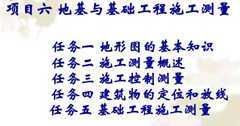 项目六 地基与基础工程施工测量
任务一 地形图的基本知识
任务二 施工测量概述
任务三 施工控制测量
任务四 建筑物的定位和放线
任务五 基础工程施工测量